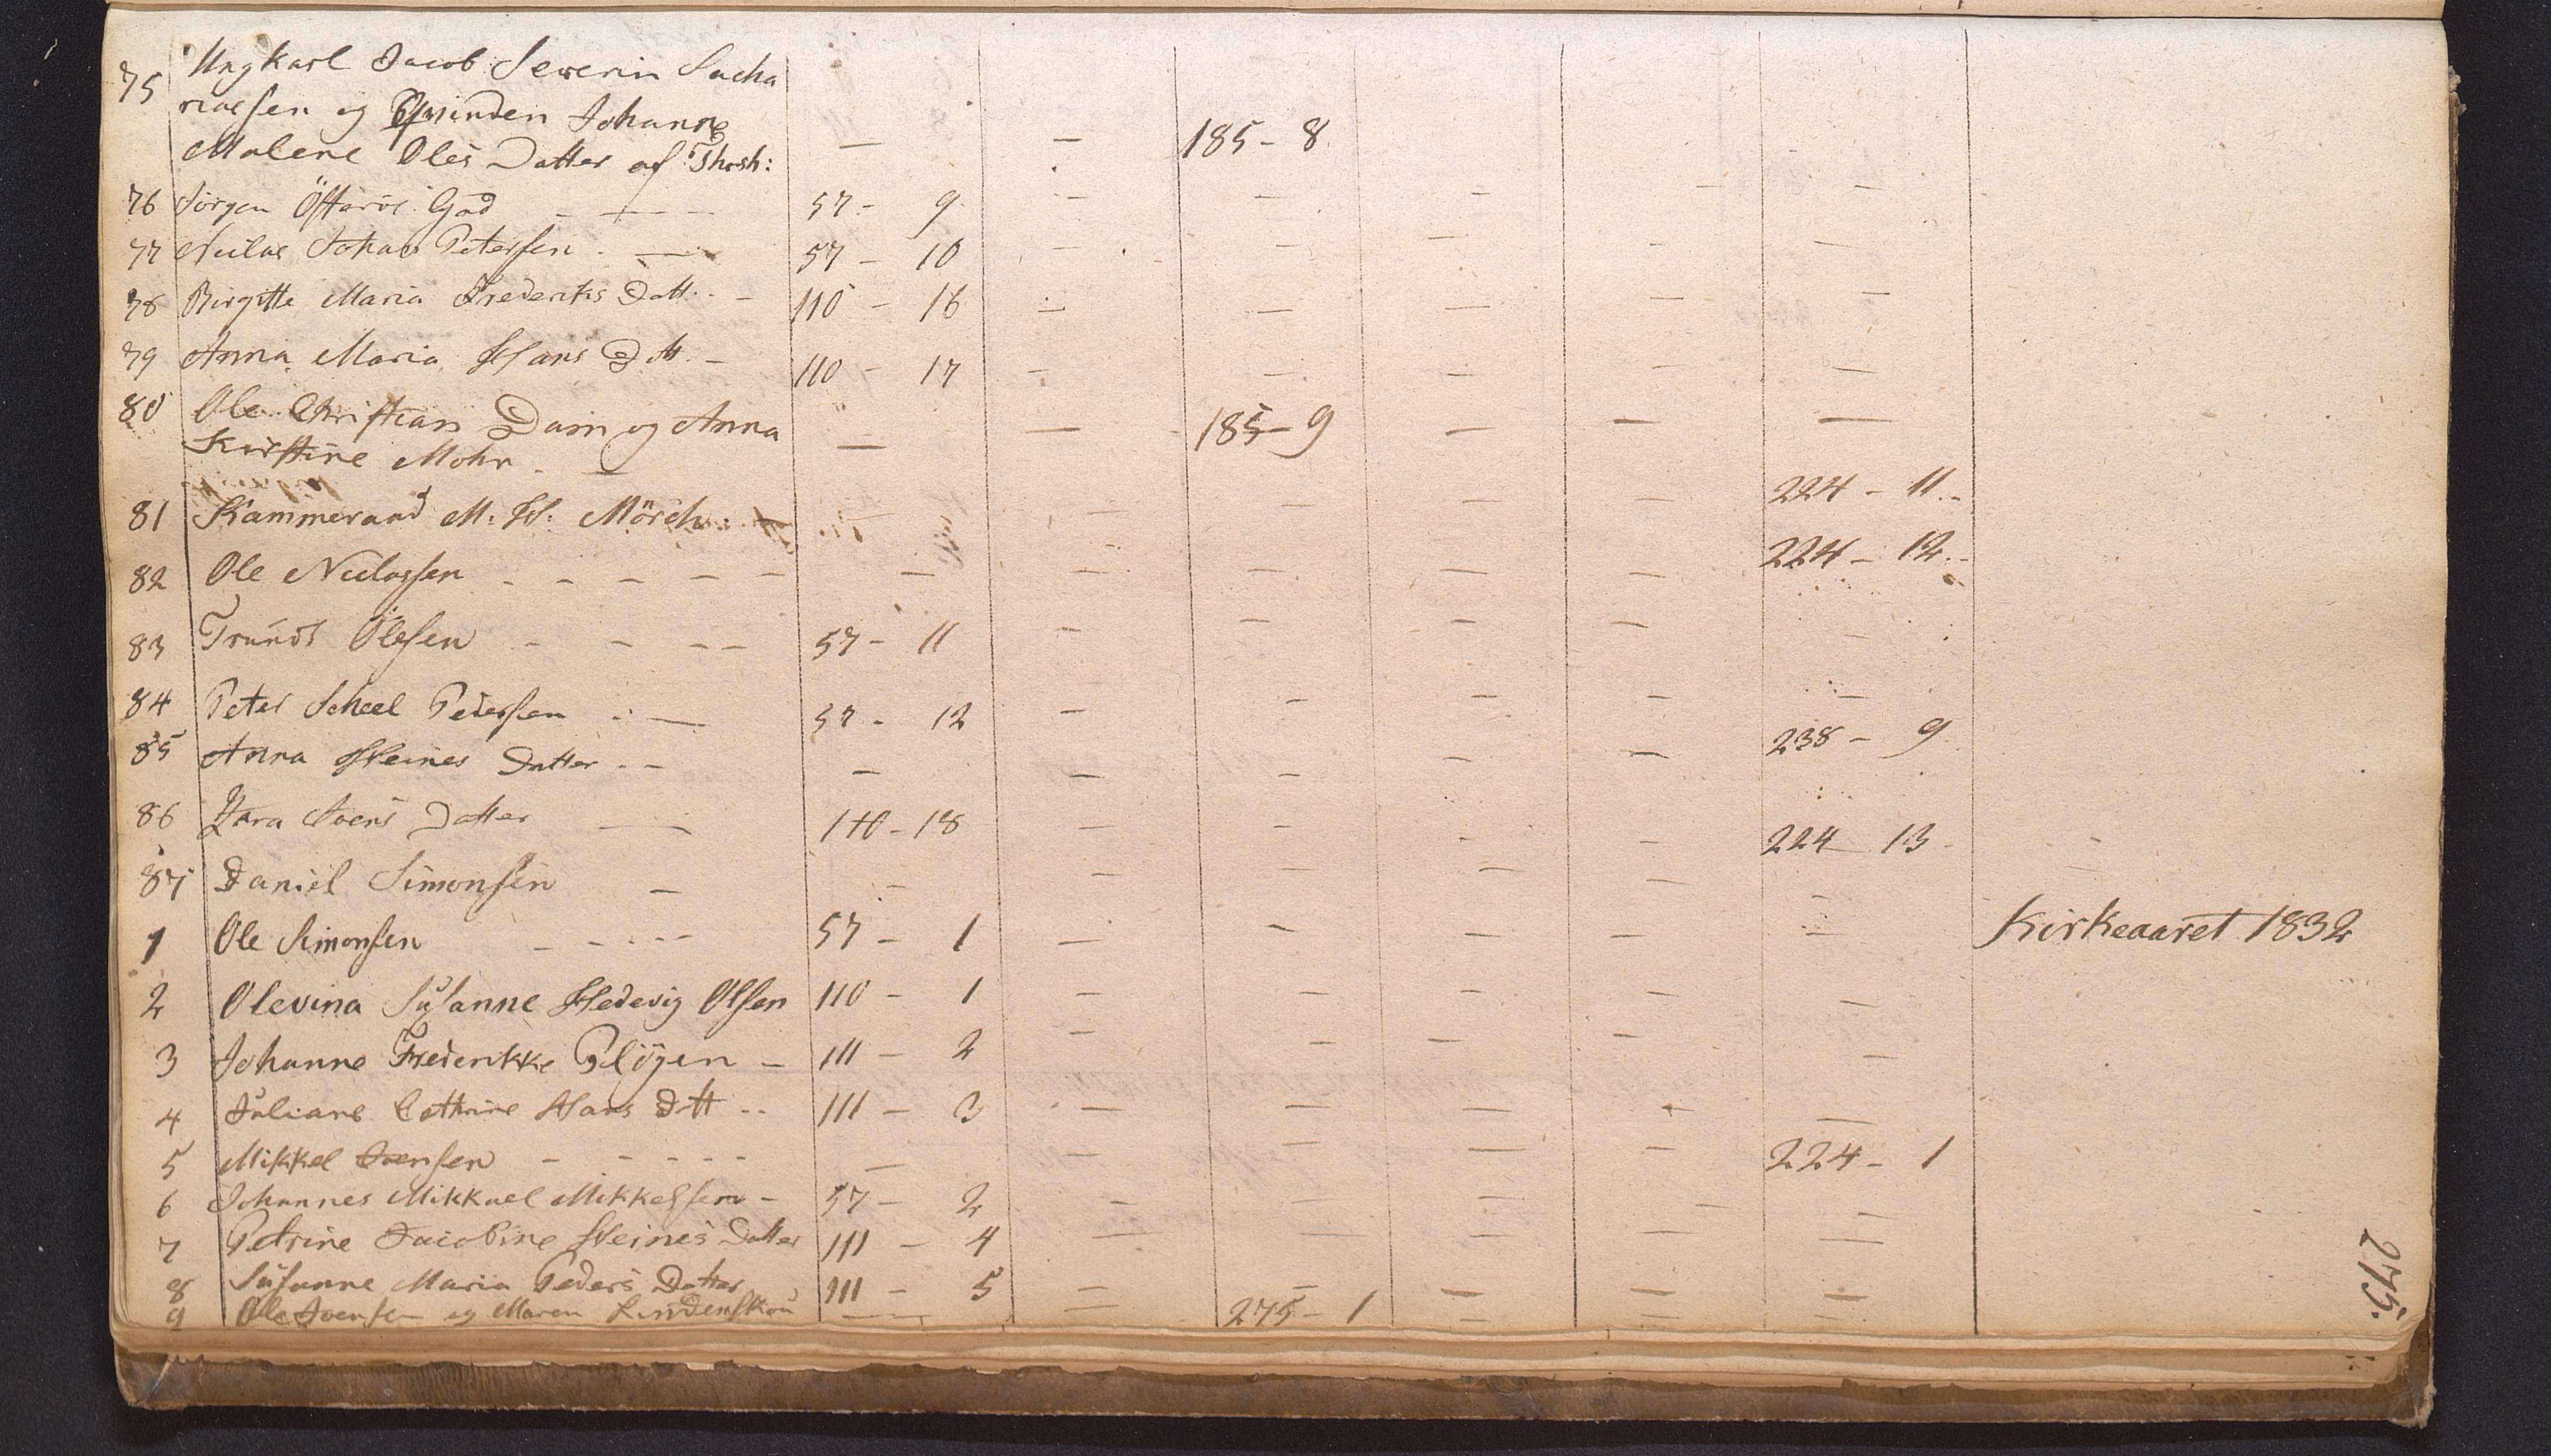 75 Ungkarl Jacob Severin Sacha
riasen og Qvinden Johanne
Malene Oles Datter af Thosh: — — 185 - 8
76 Jörgen Gad - — 57 - 9 — — — — —
77 Niclas Johan Petersen. — 57 - 10 — — — — —
78 Birgitte Maria Frederiks Datt. - 110 - 16 — — — — —
79 Anna Maria Hans Dtt. - 110 - 17 - — — — —
80 Ole Christian Dam og Anna
Kirstine Mohr. — — — 185 - 9 — — —
81 Kammeraad M: H: Mörch: — — — — — 224 - 11..
82 Ole Niclassen - - - - - — — — — — 224 - 12..
83 Trundt Olesen - - - - 57 - 11 — — — — —
84 Peter Scheel Pedersen . — 57 - 12 — — — — —
85 Anna Heines Datter - - — — — — — 238 - 9
86 Zara Joens Datter — 110 - 18 — — — —
87 Daniel Simonsen — — — — — — 224 - 13
1 Ole Simonsen - - - - - 57 - 1 — — — — — Kirkeaaret 1832
2 Olevina Susanne Hedevig Olsen 110 - 1 — — — — —
3 Johanne Frederikke Plöyen - 111 - 2 — — — — —
4 Juliane Cathrine Hans Dtt - - 111 - 3 — — — — —
5 Mikkel Joensen - - - - - — — — — 224 - 1
6 Johannes Mikkael Mikkelsen - 57 - 2 — — — — —
7 Petrine Jacobine Heines Datter 111 - 4 — — — — —
8 Susanne Maria Peders Datter 111 - 5 — — — — —
9 Ole Joensen og Maren Lindenskou — — 275 - 1 — — —
275.